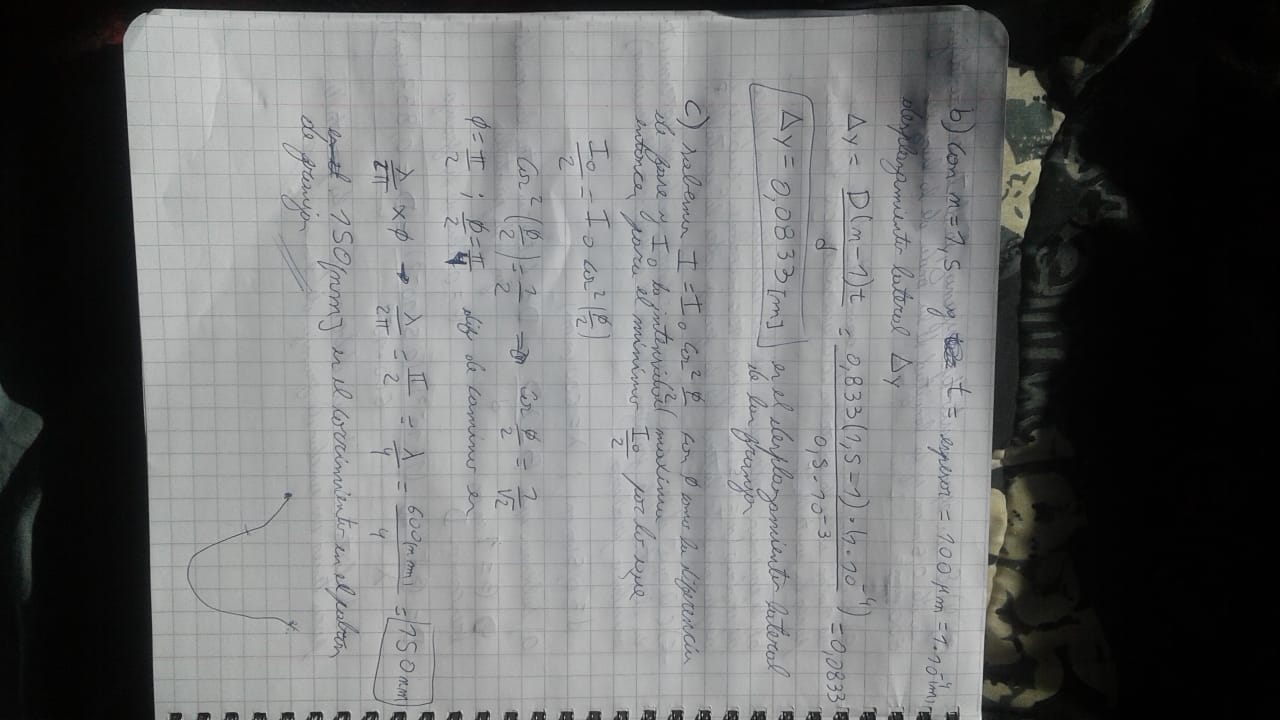 b) Con n=1,5 y t = espesor = 100 μm = 1·10⁻⁴[m]
desplazamiento lateral Δy
Δy = D(n-1)t / d = 0,833(1,5-1)·(1·10⁻⁴) / 0,5·10⁻³ = 0,0833
Δy = 0,0833[m] es el desplazamiento lateral
de las franjas
c) sabemos I = I₀ cos² φ/2 con φ como la diferencia
de fase y I₀ la intensidad maxima
entonces para el minimo I₀/2 por lo que
I₀/2 = I₀ cos²(φ/2)
cos²(φ/2) = 1/2 → cos φ/2 = 1/√2
φ = π/2 ; φ/2 = π/4 dif de camino es
λ/2π × φ → λ/2π = π/2 = λ/4 = 600[nm]/4 = 150[nm]
150[nm] es el corrimiento en el patron
de franjas